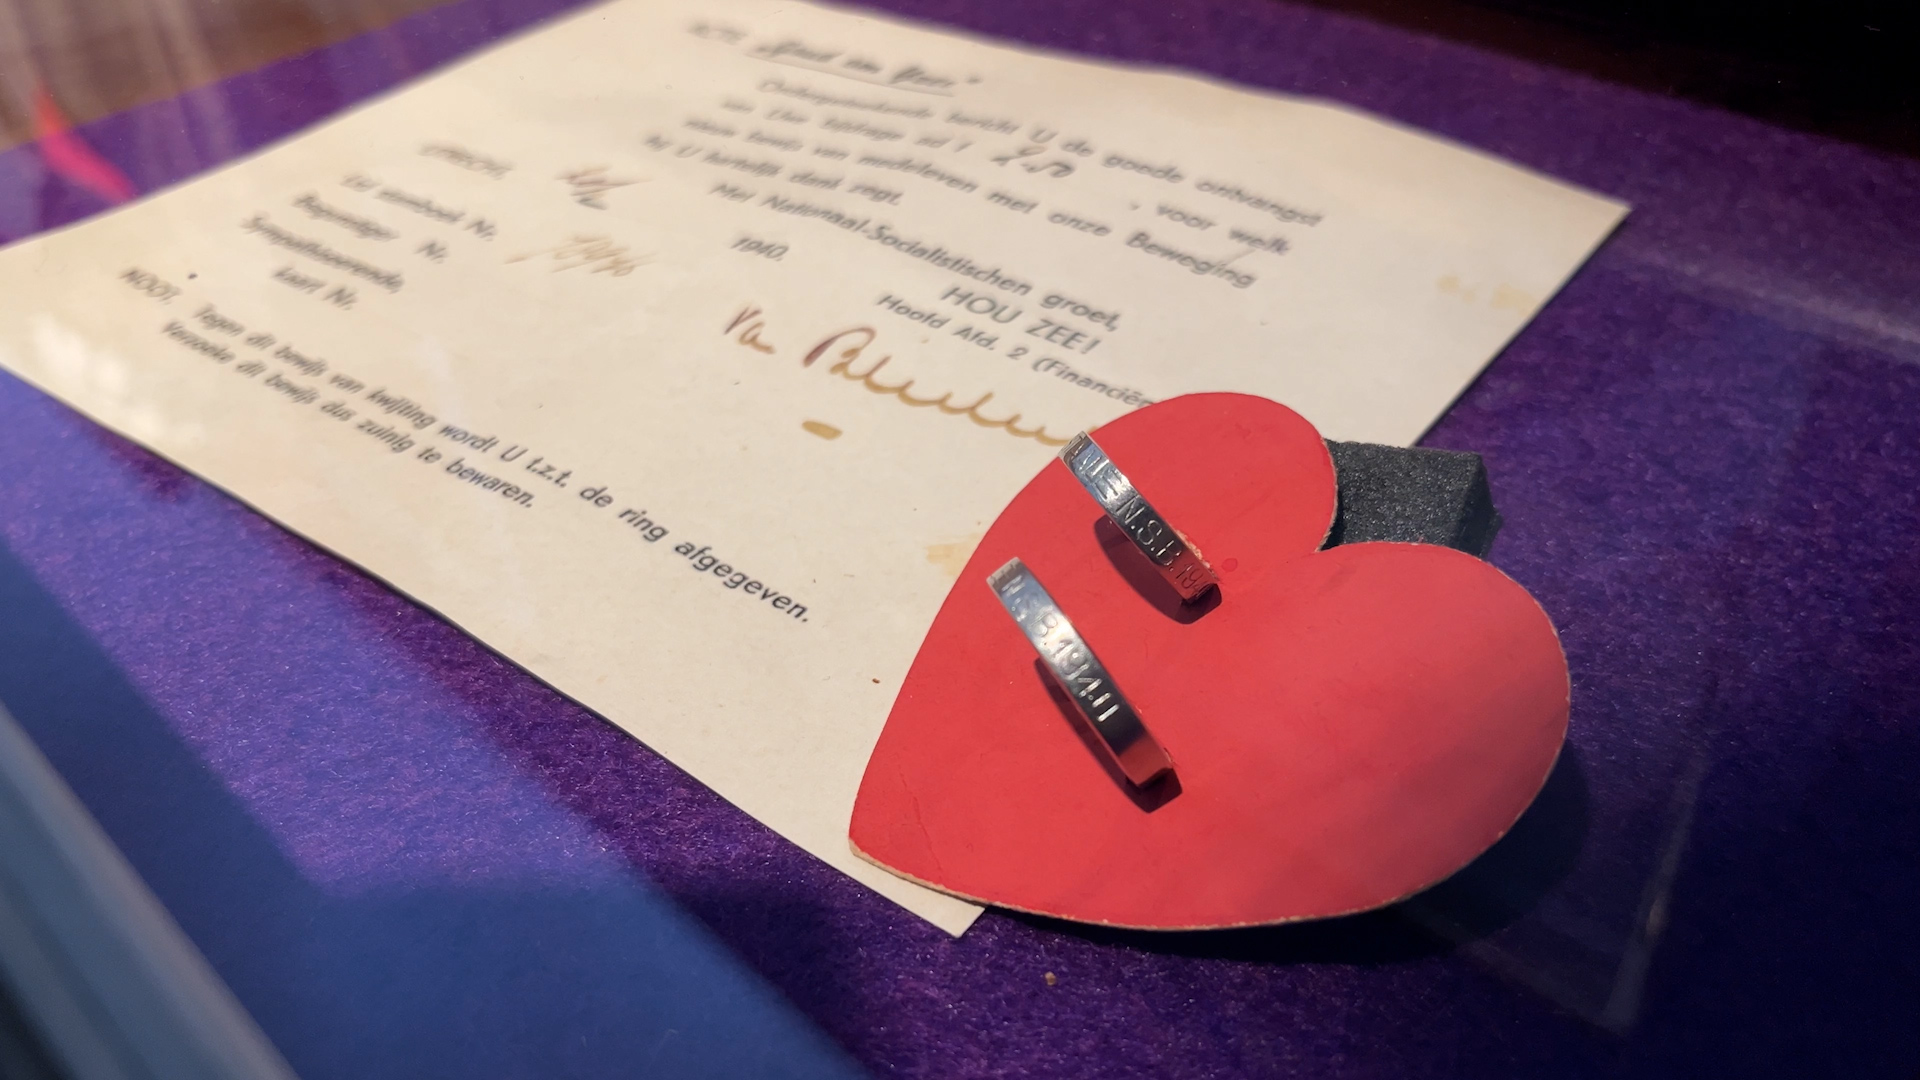 Ondergeteekende bericht U de goede ontvangst
van Uw bijdrage ad f , voor welk
nieuw bewijs van medeleven met onze Beweging
hij U hartelijk dank zegt.
Met Nationaal-Socialistischen groet,
HOU ZEE!
Hoofd Afd. 2 (Financiën
UTRECHT, 1940.
Lid stamboek Nr.
Begunstiger Nr.
Sympathiseerende,
kaart Nr.
NOOT. Tegen dit bewijs van kwijting wordt U t.z.t. de ring afgegeven.
Verzoeke dit bewijs dus zuinig te bewaren.
N.S.B. 19
N.S.B. 1941